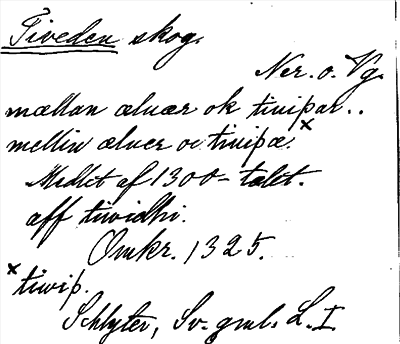 Tiveden skog.
Ner. o. Vg.
mællan ælvær ok tiuiþar..
mellin ælver oc tiuiþæ.x
Midlet af 1300-talet.
aff tiwidhi.
Omkr. 1325.
x tiwiþ.
Schlyter, Sv. gml. L. I.